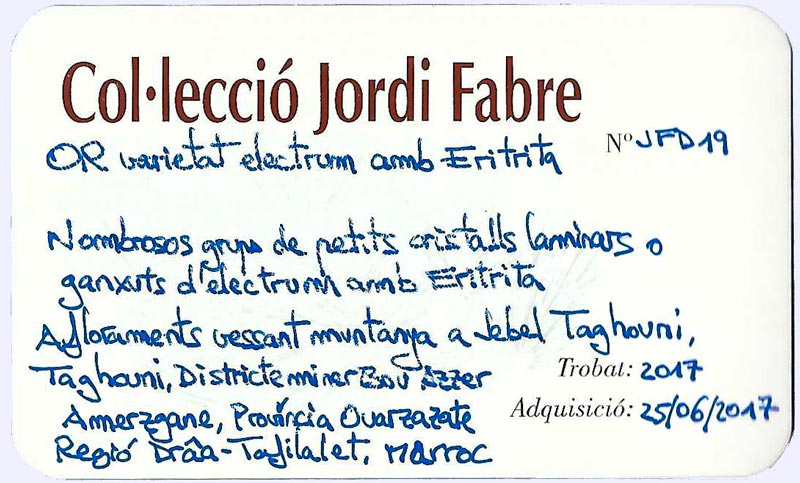 Col·lecció Jordi Fabre
OR varietat electrum amb Eritrita Nº JFD19
Nombrosos grups de petits cristalls laminars o
ganxuts d'electrum amb Eritrita
Afloraments vessant muntanya a Jebel Taghouni,
Taghouni, Districte miner Bou Azzer
Trobat: 2017
Amerzgane, Província Ouarzazate
Adquisició: 25/06/2017
Regió Drâa-Tafilalet, Marroc